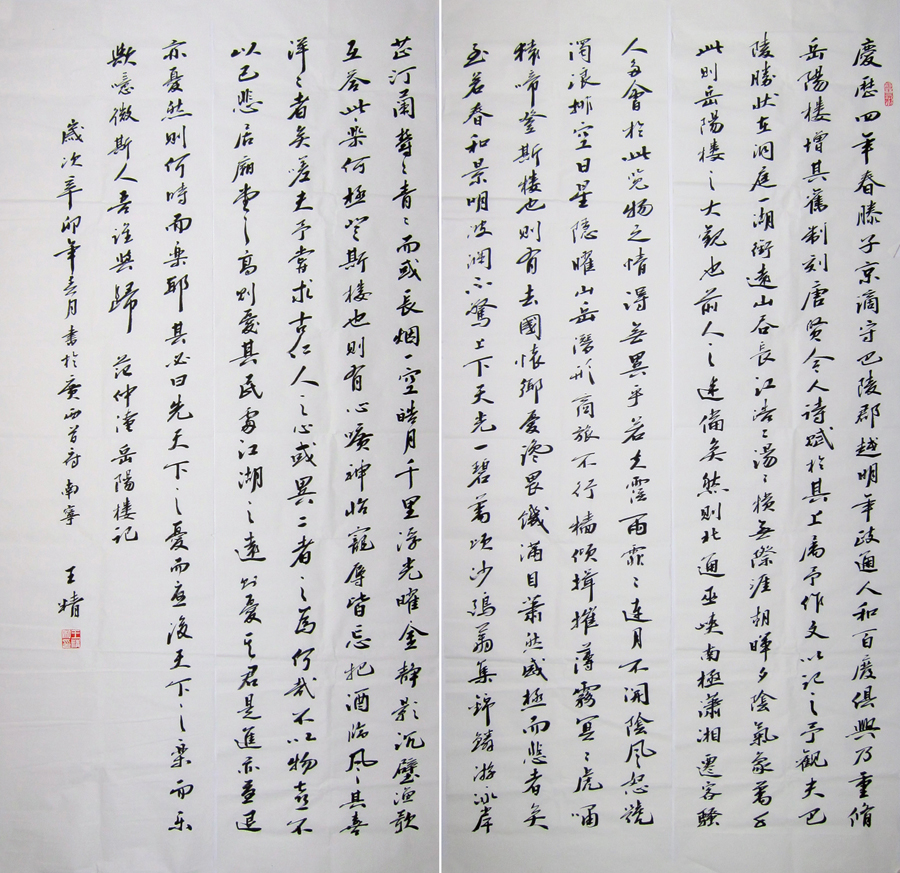 慶歷四年春滕子京謫守巴陵郡越明年政通人和百廢俱興乃重脩
岳陽樓增其舊制刻唐賢今人詩賦於其上属予作文以記之予觀夫巴
陵勝状在洞庭一湖銜遠山吞長江浩〻湯〻橫無際涯朝暉夕陰氣象萬千
此則岳陽樓之大觀也前人之述備矣然則北通巫峽南極瀟湘遷客騷
人多會於此览物之情得無異乎若夫霪雨霏〻連月不開陰風怒號
濁浪排空日星隱曜山岳潛形商旅不行檣傾楫摧薄霧冥〻虎嘯
猿啼登斯樓也則有去國懷鄉憂讒畏譏滿目蕭然感極而悲者矣
至若春和景明波瀾不驚上下天光一碧萬頃沙鷗翥集錦鱗游泳岸
芷汀蘭菁〻青〻而或長烟一空皓月千里浮光曜金靜影沉璧漁歌
互答此樂何極登斯樓也則有心曠神怡寵辱皆忘把酒臨風〻其喜
洋〻者矣嗟夫予嘗求古仁人之心或異二者之為何哉不以物喜不
以己悲居廟堂之高則憂其民處江湖之遠則憂其君是進亦憂退
亦憂然則何時而樂耶其必曰先天下之憂而憂後天下之樂而樂
歟噫微斯人吾誰與歸 范仲淹岳陽樓記
歲次辛卯年六月書於廣西首府南寧 王晴